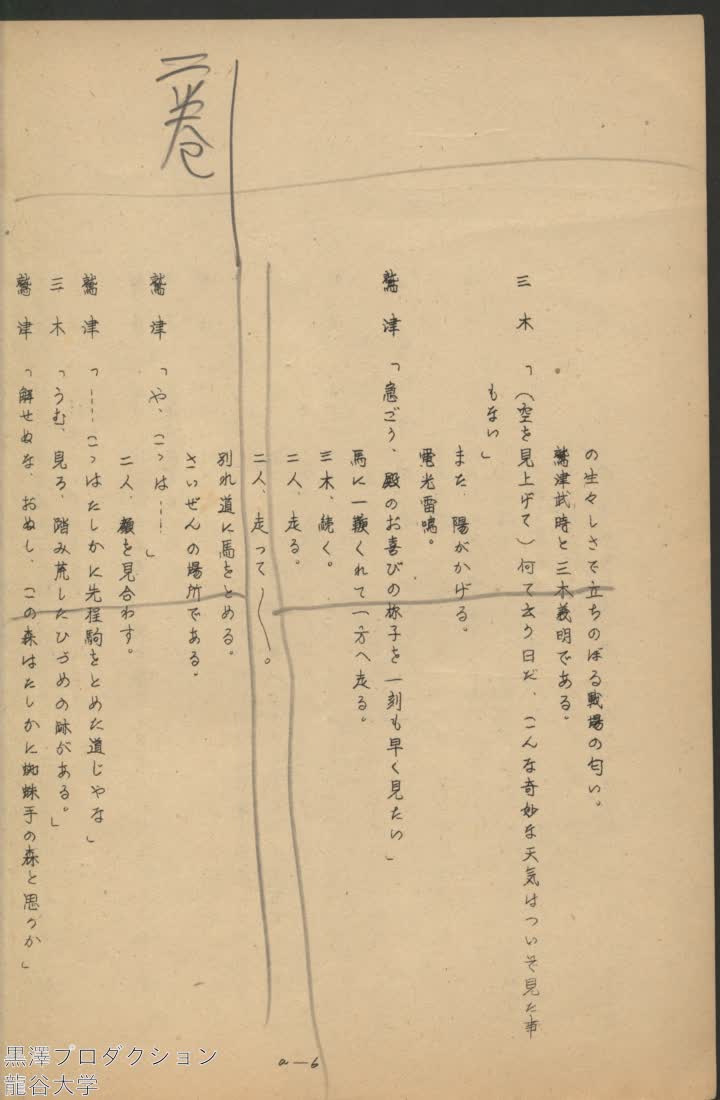 二巻
の生々しさで立ちのぼる戦場の匂い。
鷲津武時と三木義明である。
三木「(空を見上げて)何て云う日だ、こんな奇妙な天気はついぞ見た事
もない」
また、陽がかげる。
電光雷鳴。
鷲津「急ごう、殿のお喜びの様子を一刻も早く見たい」
馬に一鞭くれて一方へ走る。
三木、続く。
二人、走る。
二人、走って――。
別れ道に馬をとめる。
さいぜんの場所である。
鷲津「や、こつは……」
二人、顔を見合わす。
鷲津「……こつはたしかに先程駒をとめた道じやな」
三木「うむ、見ろ、踏み荒したひづめの跡がある。」
鷲津「解せぬな、おぬし、この森はたしかに蜘蛛手の森と思うか」
a—6
黒澤プロダクション
龍谷大学